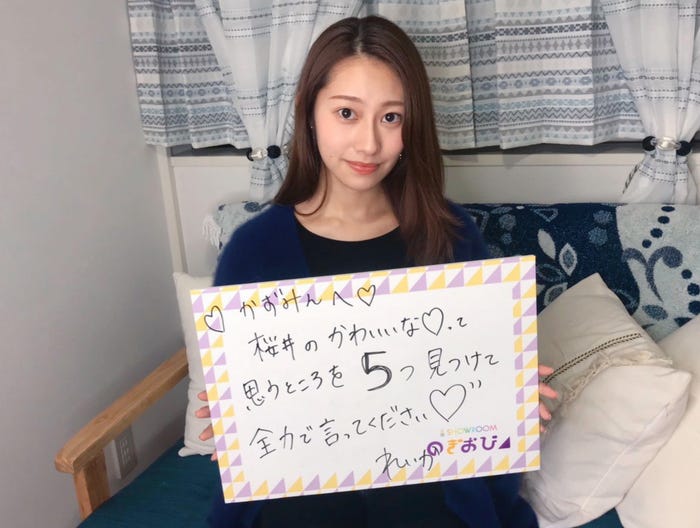 ♡ かずみんへ♡
桜井の かわいいな♡.って
思うところを 5つ 見つけて
全力で言ってください♡"
SHOWROOM
のぎおび
れいか